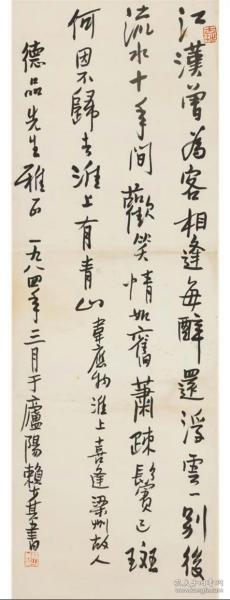 江漢曾為客相逢每醉還浮雲一別後
流水十年間歡笑情如舊蕭疎鬢已斑
何因不歸去淮上有青山 韋應物淮上喜逢梁州故人
德品先生雅正 一九八四年三月于廬陽賴少其書